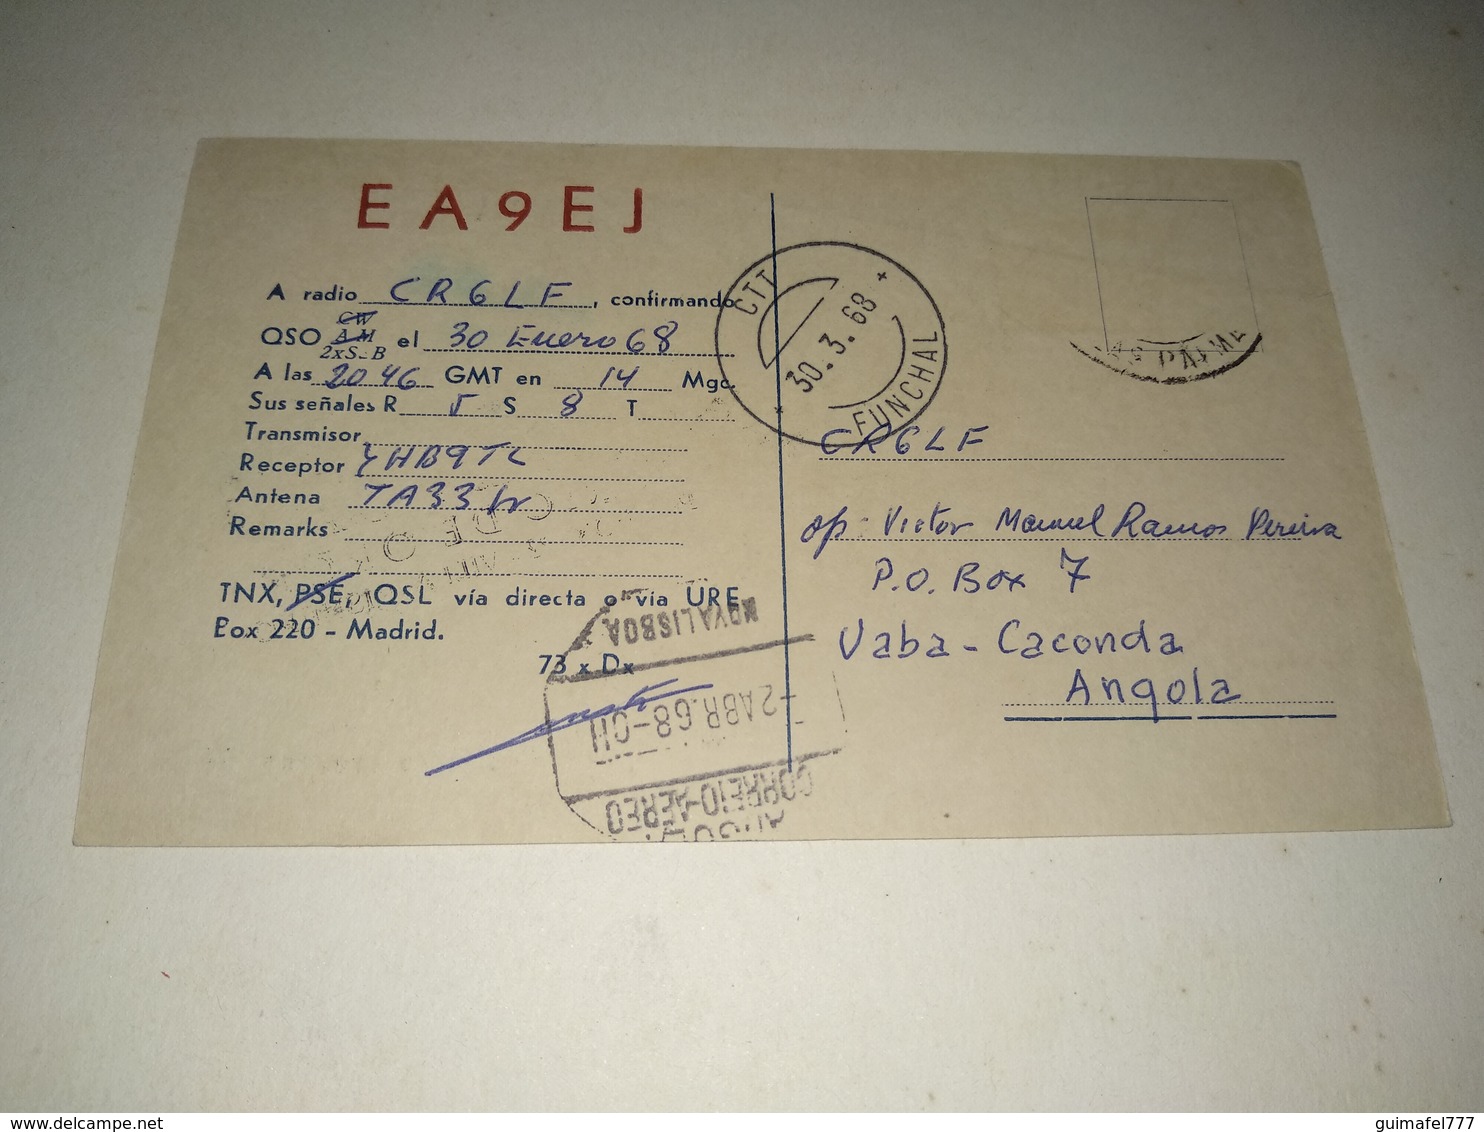 EA9EJ
A radio CR6LF, confirmando
QSO CW AM 2xS-B el 30 Enero 68
A las 2046 GMT en 14 Mgc.
Sus señales R 5 S 8 T
Transmisor
Receptor
Antena TA33
Remarks
TNX, PSE, QSL vía directa o vía URE
Box 220 - Madrid.
73 x Dx
CTT
30.3.68
FUNCHAL
PALMA
CR6LF
op: Victor Manuel Ramos Pereira
P.O. Box 7
Vaba - Caconda
Angola
NOVA LISBOA
-2 ABR.68-
CORREIO-AEREO
delcampe.net
guimafel777